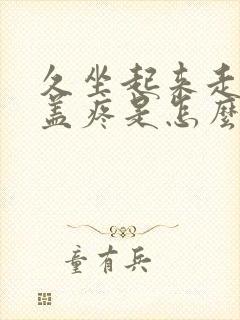 久坐起来走
盖疼是怎麽
童有兵